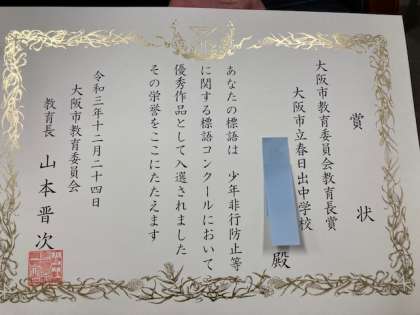 賞状
大阪市教育委員会教育長賞
大阪市立春日出中学校
殿
あなたの標語は 少年非行防止等
に関する標語コンクールにおいて
優秀作品として入選されました
その栄誉をここにたたえます
令和三年十二月二十四日
大阪市教育委員会
教育長 山本晋次